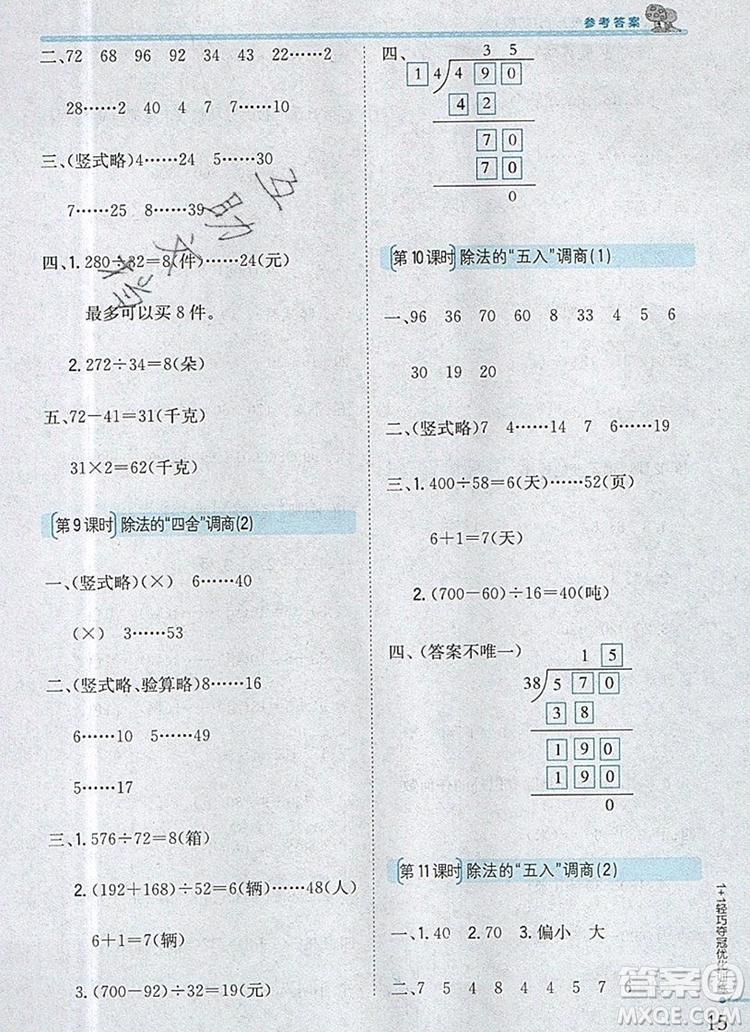 参考答案
二、72 68 98 92 94 22……2
28……2 40 4 7 7……10
三、(竖式略)4……24 5……30
7……25 8……39
四、1. 280÷32=8(件)……24(元)
最多可以买8件。
2. 272÷34=8(朵)
五、72-41=31(千克)
31×2=62(千克)
第9课时 除法的“四舍”调商(2)
一、(竖式略)(×) 6……40
(×) 3……53
二、(竖式略、验算略)8……16
6……10 5……49
5……17
三、1. 576÷72=8(箱)
2. (192+168)÷52=6(辆)……48(人)
6+1=7(辆)
3. (700-92)÷32=19(元)
四、
3 5
1 4 4 9 0
4 2
7 0
7 0
0
第10课时 除法的“五入”调商(1)
一、96 36 70 60 8 33 4 5 6
30 19 20
二、(竖式略)7 4……14 7 6……19
三、1. 400÷58=6(天)……52(页)
6+1=7(天)
2. (700-60)÷16=40(吨)
四、(答案不唯一)
1 5
38 5 7 0
3 8
1 9 0
1 9 0
0
第11课时 除法的“五入”调商(2)
一、1. 40 2. 70 3. 偏小 大
二、7 5 4 8 8 4 7 4
1+1轻巧夺冠优化训练
15
答案圈
MXQE.COM